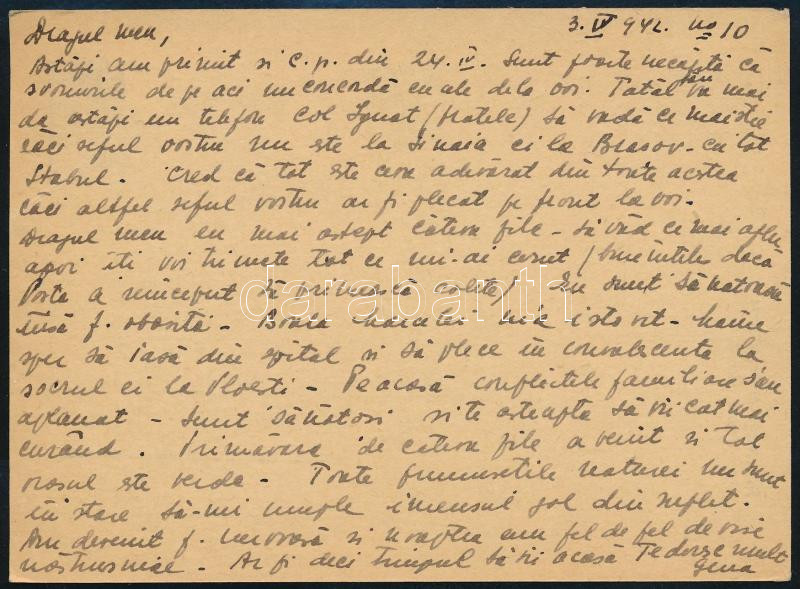 3. IV 942. no 10
Dragul meu,
Astăzi am primit si c.p. din 24. IV. Sunt foarte necăjită că
svonurile de pe aci nu concordă cu ale dela voi. Tatăl tău va mai
da astăzi un telefon Col Ignat (fratele) să vadă ce mai stie
căci seful vostru nu este la Sinaia ci la Brasov - cu tot
Stabul. Cred că tot este ceva adevărat din toate acestea
căci altfel seful vostru ar fi plecat pe front la voi.
Dragul meu eu mai astept câteva zile - să văd ce mai aflu
apoi iti voi trimete tot ce mi-ai cerut (bineînteles dacă
Posta a inceput să primească colete). Eu sunt sănătoasă
însă f. obosită - Boala m'a istovit - Maine
sper să iasă din spital si să plece in convalescenta la
socrul ei la Ploesti - Pe acasă conflictele familiare s'au
aplanat - Sunt sănătosi si te asteaptă să vii cat mai
curând. Primăvara de câteva zile a venit si tot
orasul este verde - Toate frumusetile naturei nu sunt
in stare să-mi umple imensul gol din suflet.
Am devenit f. nervoasă si noaptea am fel de fel de vise
năstrusnice - Ar fi deci timpul să vii acasă Te doresc mult
darabanth